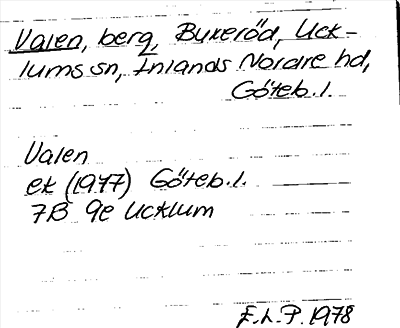 Valen, berg, Bukeröd, Uck-
lums sn, Inlands Nordre hd,
Göteb.l.
Valen
ek (1977) Göteb.l.
7B 9e Ucklum
E.L.P. 1978